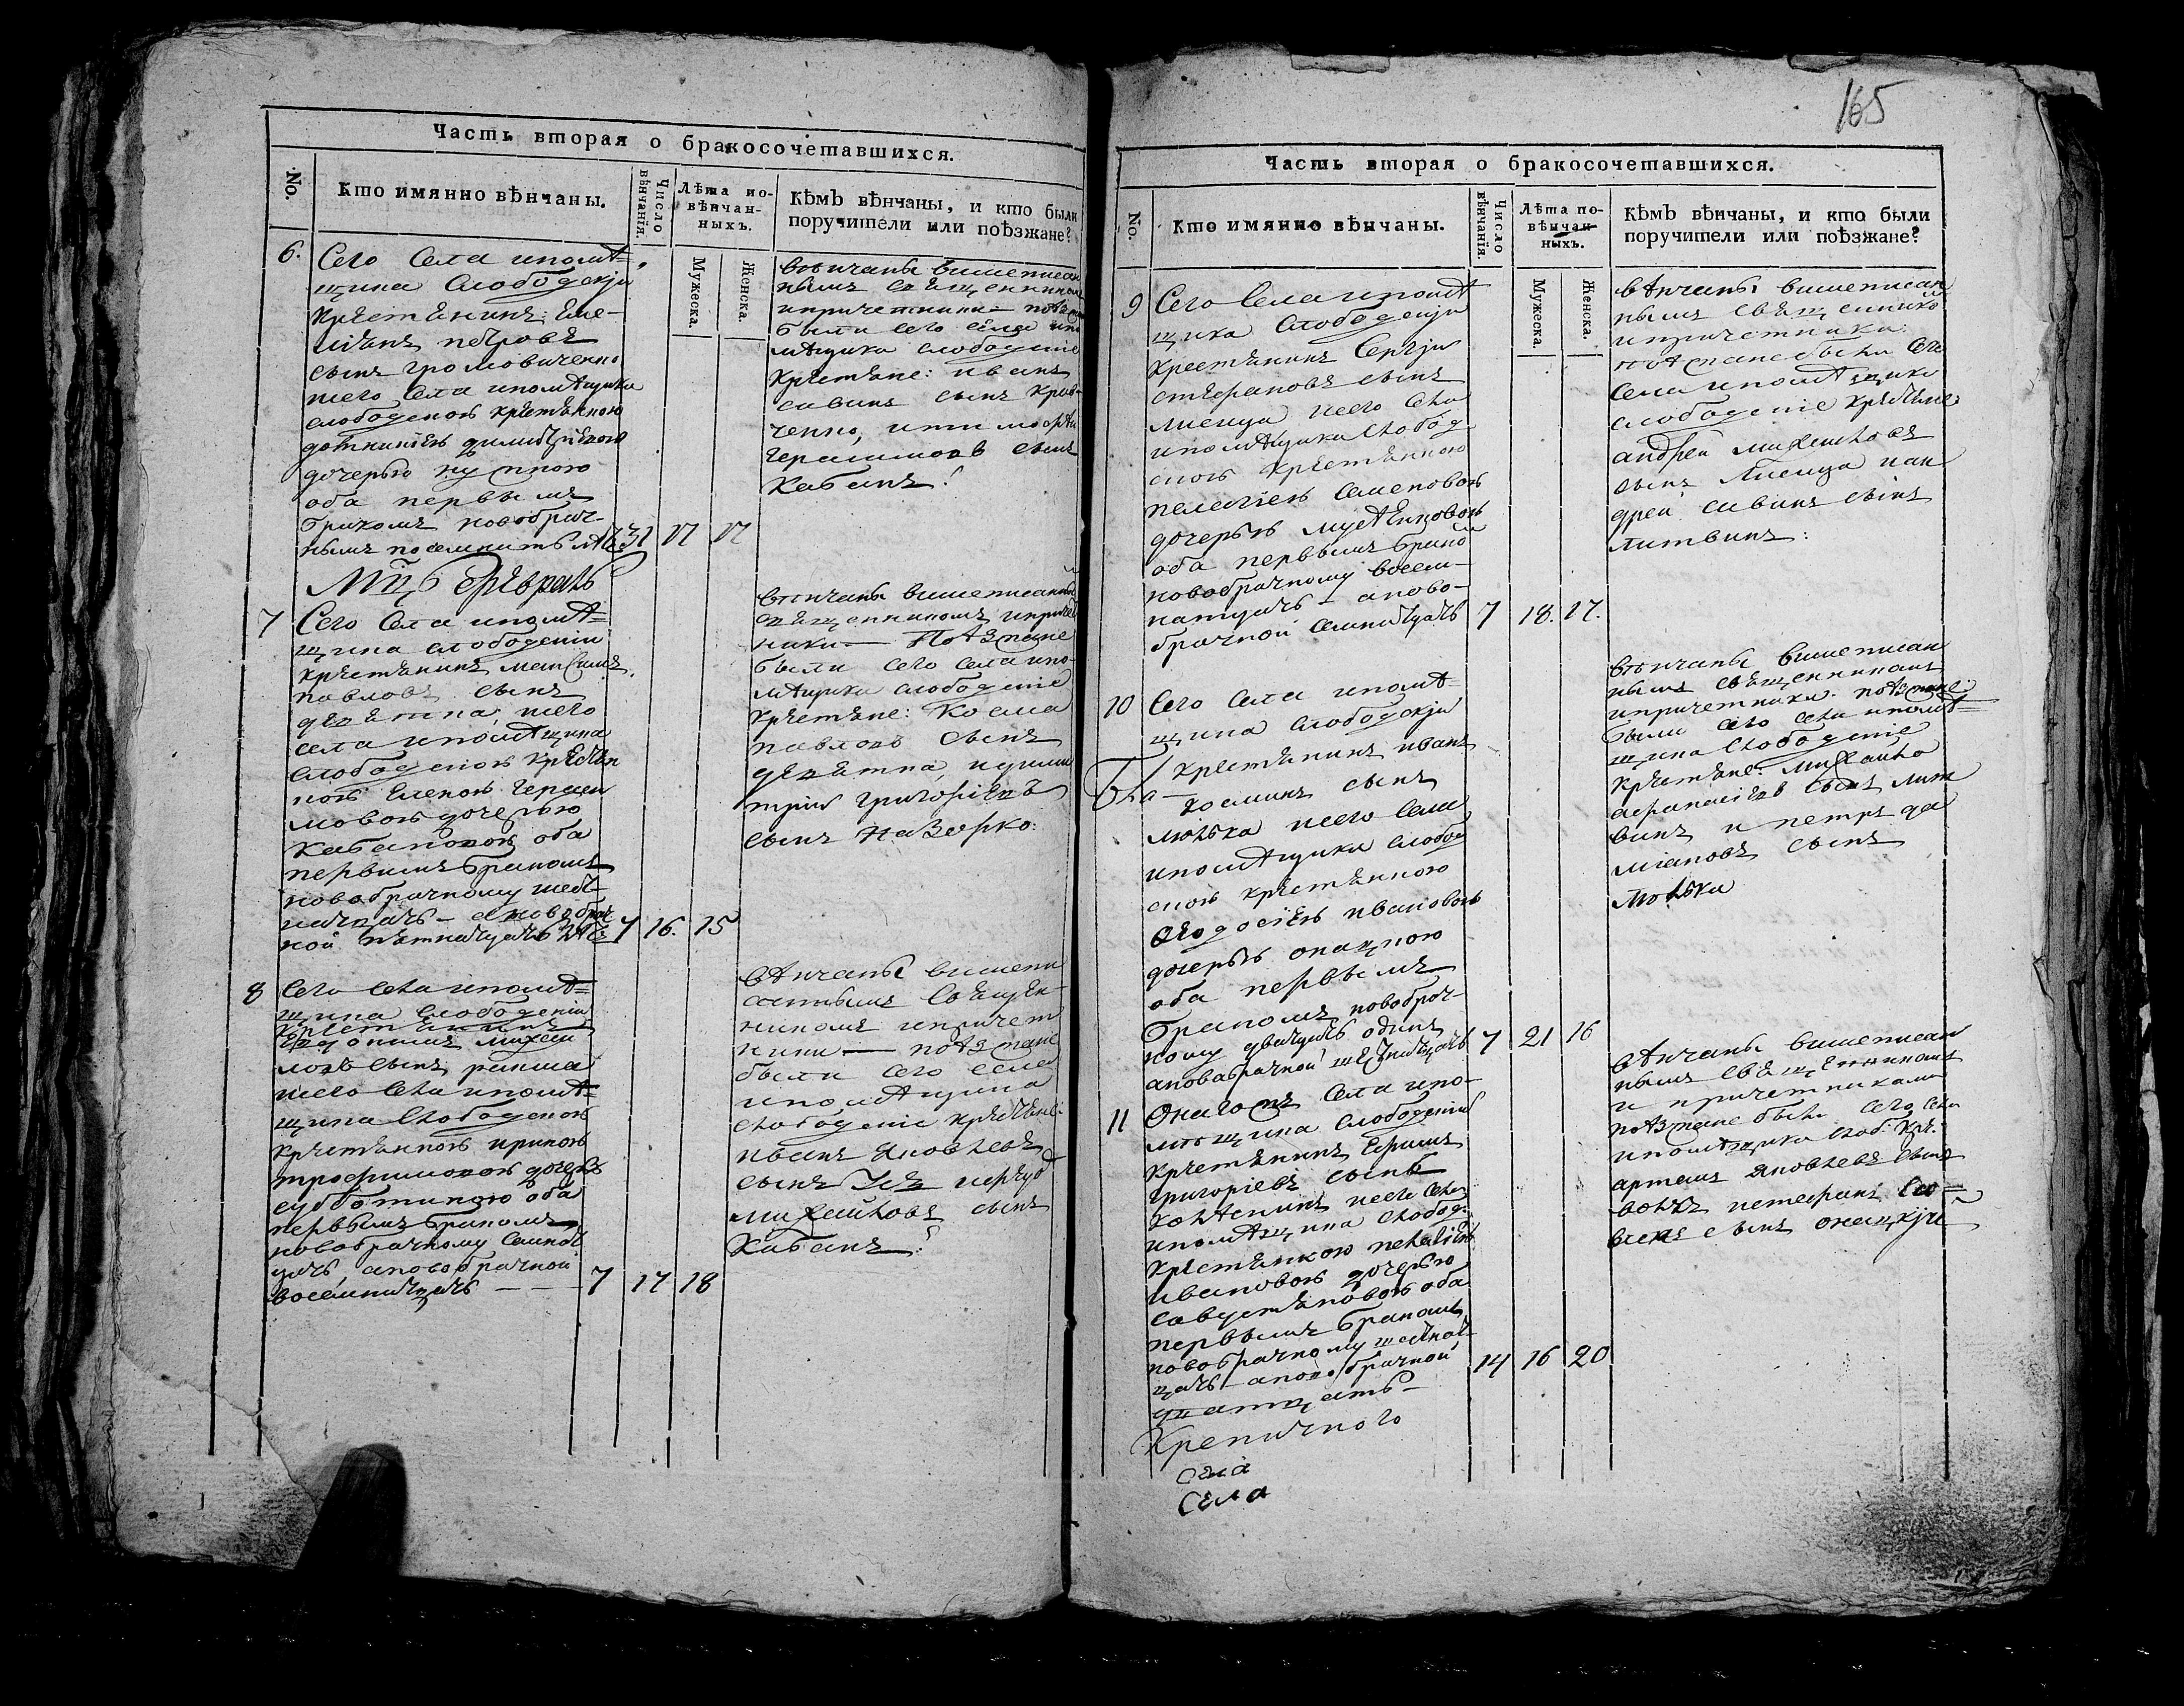 Часть вторая о бракосочетавшихся.
No.
Кто имянно вѣнчаны.
Число вѣнчанія.
Лѣта повѣнчанныхъ.
Мужеска.
Женска.
Кѣмъ вѣнчаны, и кто были
поручители или поѣзжане?
6.
Сего Села ипомѣ=
щика Слободскји
крестянинъ: Еме-
лянъ петровъ
сынъ громовиченко
исего Села ипомѣщика
слободскою крестянкою
дочерью
оба первымъ
бракомъ новобрач-
нымъ по семнитъ лѣтъ
31 17 17
вѣнчаны вишеписан
нымъ священникомъ
ипричетники поѣзжане
были сего села ипо
мѣщика слободскіе
крестяне: иванъ
савинъ сынъ крав-
ченко, итимофѣй
герасимовъ сынъ
Кабанъ:
Мцъ Февраль
7
Сего Села ипомѣ=
щика слободскіи
крестянинъ максимъ
павловъ сынъ
девятка, исего
села ипомѣщика
слободскою крестян
кою Еленою гераси
мовою дочерью
Кабановою оба
первимъ бракомъ
новобрачному шест-
натцать - а новобрач
ной пятнатцать лѣтъ
7 16. 15
вѣнчаны вишеписаннымъ
священникомъ ипричет
ники — Поѣзжане
были сего села ипо-
мѣщика слободскіе
крестяне: Косма
павловъ сынъ
девятка, идими
трій григоріевъ
сынъ Назарко:
8
Сего Села ипомѣ=
щика Слободскіи
крестянинъ
михаи
ловъ сынъ ракша
исего Села ипомѣ=
щика Слободскою
крестянкою ириною
трофимовою дочерю
субботиною оба
первымъ бракомъ
новобрачному семнат
цать, а новобрачной
восемнитцать — —
7 17 18
вѣнчаны вишепи
саннымъ Священ-
никомъ ипричет
ники — поѣзжане
были Сего Села
ипомѣщика
слободскіе крестяне:
иванъ Яковлевъ
сынъ
михайловъ сынъ
Кабанъ:
165
Часть вторая о бракосочетавшихся.
No.
Кто имянно вѣнчаны.
Число вѣнчанія.
Лѣта повѣнчанныхъ.
Мужеска.
Женска.
Кѣмъ вѣнчаны, и кто были
поручители или поѣзжане?
9
Сего Села ипомѣ
щика Слободскји
крестянинъ Сергји
стефановъ сынъ
лисица исего Села
ипомѣщика Слобод
скою крестянкою
пелагіею Семеновою
дочерью
оба первымъ бракомъ
новобрачному восем-
натцать - а ново-
брачной семнитцать
7 18. 17.
вѣнчаны вишеписан
нымъ священнико
ипричетники:
поѣзжане были Сего
Села ипомѣщика
слободскіе крестяне:
андрей михайловъ
сынъ Лисица иан
дрей савинъ сынъ
литвинъ:
10
Сего Села ипомѣ=
щика слободскји
крестянинъ иванъ
косминъ сынъ
люлька исего Села
ипомѣщика слобод
скою крестянкою
Феодосіею ивановою
дочерью онацкою
оба первымъ
бракомъ новобрач-
ному дватцать одинъ
а новобрачной шестнитцать
7 21 16
вѣнчаны вишеписан
нымъ священникомъ
ипричетники поѣзжане:
были сего села ипомѣ=
щика Слободскіе
крестяне: михайло
афанасіевъ сынъ лит
винъ и петръ да
міановъ сынъ
Люлька
11
Онагожъ Села ипо-
мѣщика слободскіи
крестянинъ Ефимъ
григоріевъ сынъ
исего Села
ипомѣщика слобод:
крестянкою пелагіею
ивановою дочерью
оба
первымъ бракомъ
новобрачному шестнат-
цать - а новобрачной
дватцать -
14 16 20
вѣнчаны вишеписан
нымъ священникомъ
и причетниками
поѣзжане были сего села
ипомѣщика слоб: кре:
артемъ Яковлевъ сынъ
истефанъ
сынъ онацкји
Крепичного
Села
Села